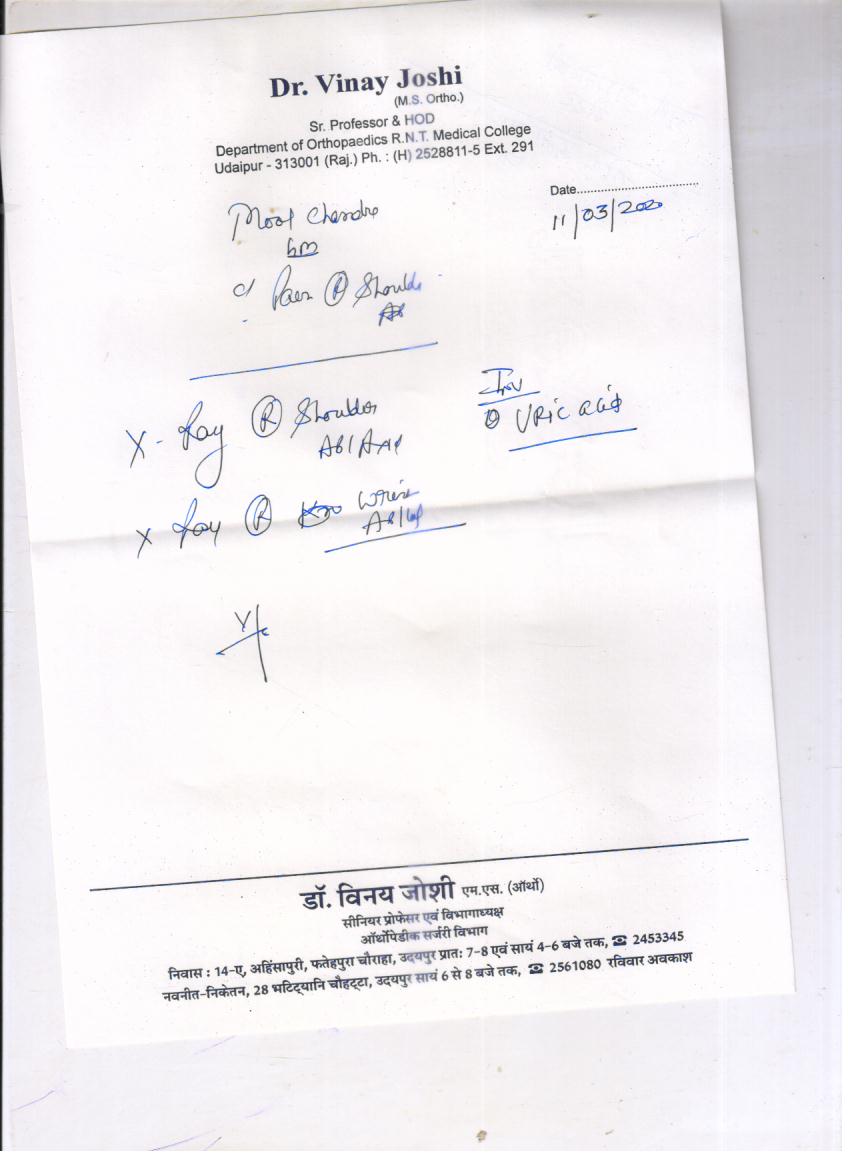 Dr. Vinay Joshi
(M.S. Ortho.)
Sr. Professor & HOD
Department of Orthopaedics R.N.T. Medical College
Udaipur - 313001 (Raj.) Ph. : (H) 2528811-5 Ext. 291
Date......................................
11/03/2020
Mool Chandra
c/ Pain R Should
X-Ray R Shoulder
Inv
Uric acid
X Ray R Wrist
डॉ. विनय जोशी एम.एस. (ऑर्थो)
सीनियर प्रोफेसर एवं विभागाध्यक्ष
ऑर्थोपेडीक सर्जरी विभाग
निवास : 14-ए, अहिंसापुरी, फतेहपुरा चौराहा, उदयपुर प्रातः 7-8 एवं सायं 4-6 बजे तक, ☎ 2453345
नवनीत-निकेतन, 28 भटि्यानि चौहट्टा, उदयपुर सायं 6 से 8 बजे तक, ☎ 2561080 रविवार अवकाश